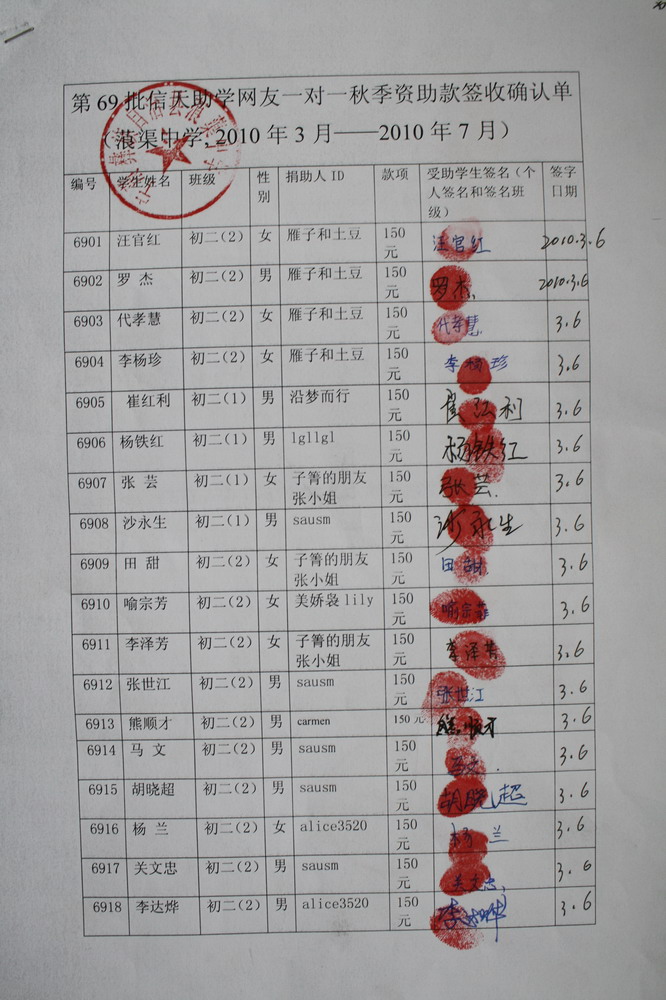 第69批信天助学网友一对一秋季资助款签收确认单
（蒗渠中学，2010年3月——2010年7月）
编号 学生姓名 班级 性别 捐助人ID 款项 受助学生签名（个人签名和签名班级） 签字日期
6901 汪官红 初二(2) 女 雁子和土豆 150元 汪官红 2010.3.6
6902 罗 杰 初二(2) 男 雁子和土豆 150元 罗杰. 2010.3.6
6903 代孝慧 初二(2) 女 雁子和土豆 150元 代孝慧 3.6
6904 李杨珍 初二(2) 女 雁子和土豆 150元 李杨珍 3.6
6905 崔红利 初二(1) 男 沿梦而行 150元 崔红利 3.6
6906 杨铁红 初二(1) 男 lgllgl 150元 杨铁红 3.6
6907 张 芸 初二(1) 女 子箐的朋友张小姐 150元 张芸. 3.6
6908 沙永生 初二(1) 男 sausm 150元 沙永生 3.6
6909 田 甜 初二(2) 女 子箐的朋友张小姐 150元 田甜. 3.6
6910 喻宗芳 初二(2) 女 美娇袅lily 150元 喻宗芳 3.6
6911 李泽芳 初二(2) 女 子箐的朋友张小姐 150元 李泽芳 3.6
6912 张世江 初二(2) 男 sausm 150元 张世江 3.6
6913 熊顺才 初二(2) 男 carmen 150元 熊顺才 3.6
6914 马 文 初二(2) 男 sausm 150元 马文. 3.6
6915 胡晓超 初二(2) 男 sausm 150元 胡晓超 3.6
6916 杨 兰 初二(2) 女 alice3520 150元 杨兰 3.6
6917 关文忠 初二(2) 男 sausm 150元 关文忠. 3.6
6918 李达烨 初二(2) 男 alice3520 150元 李达烨 3.6